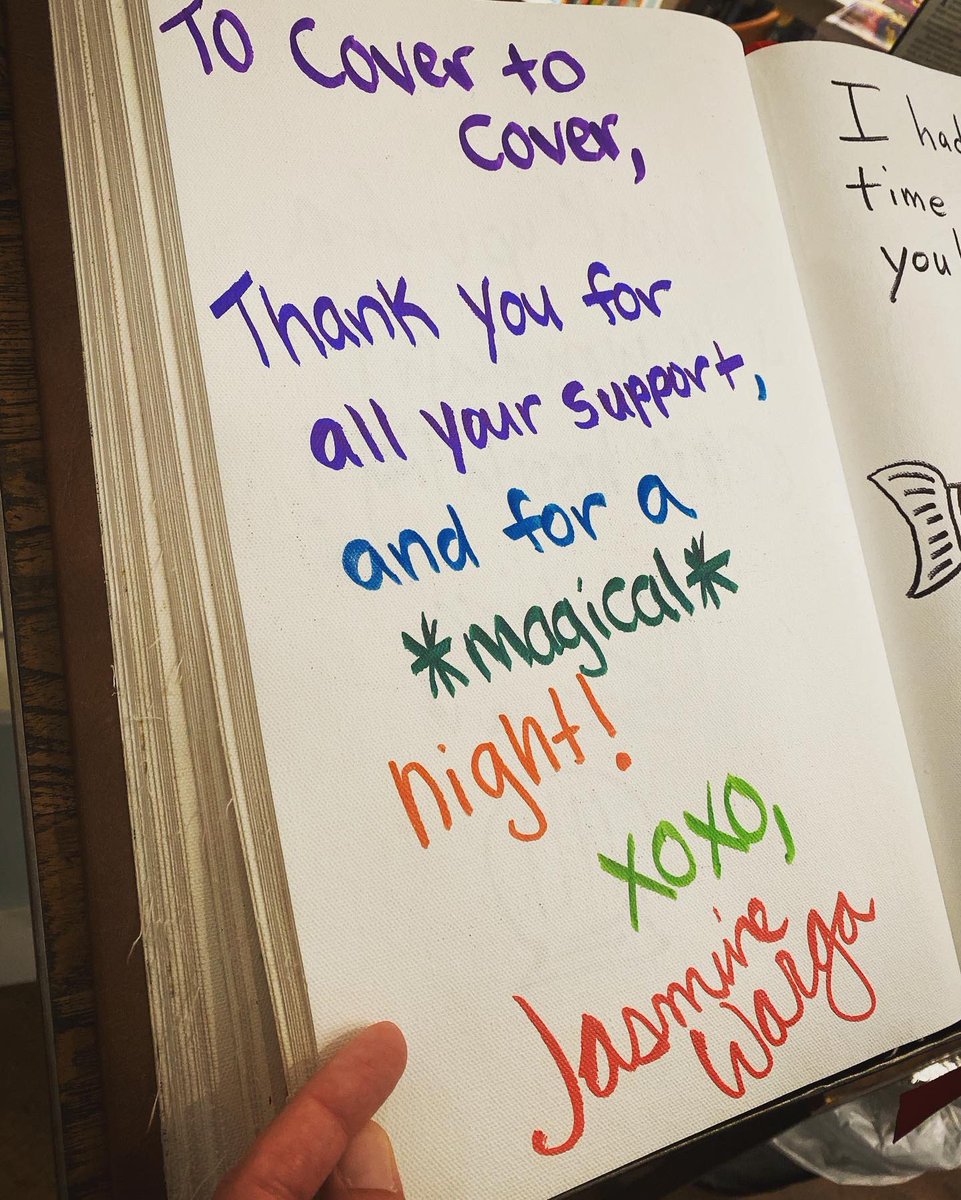 To Cover to
Cover,
Thank you for
all your support,
and for a
*magical*
night!
xoxo,
Jasmine
Warga
I had
time
you